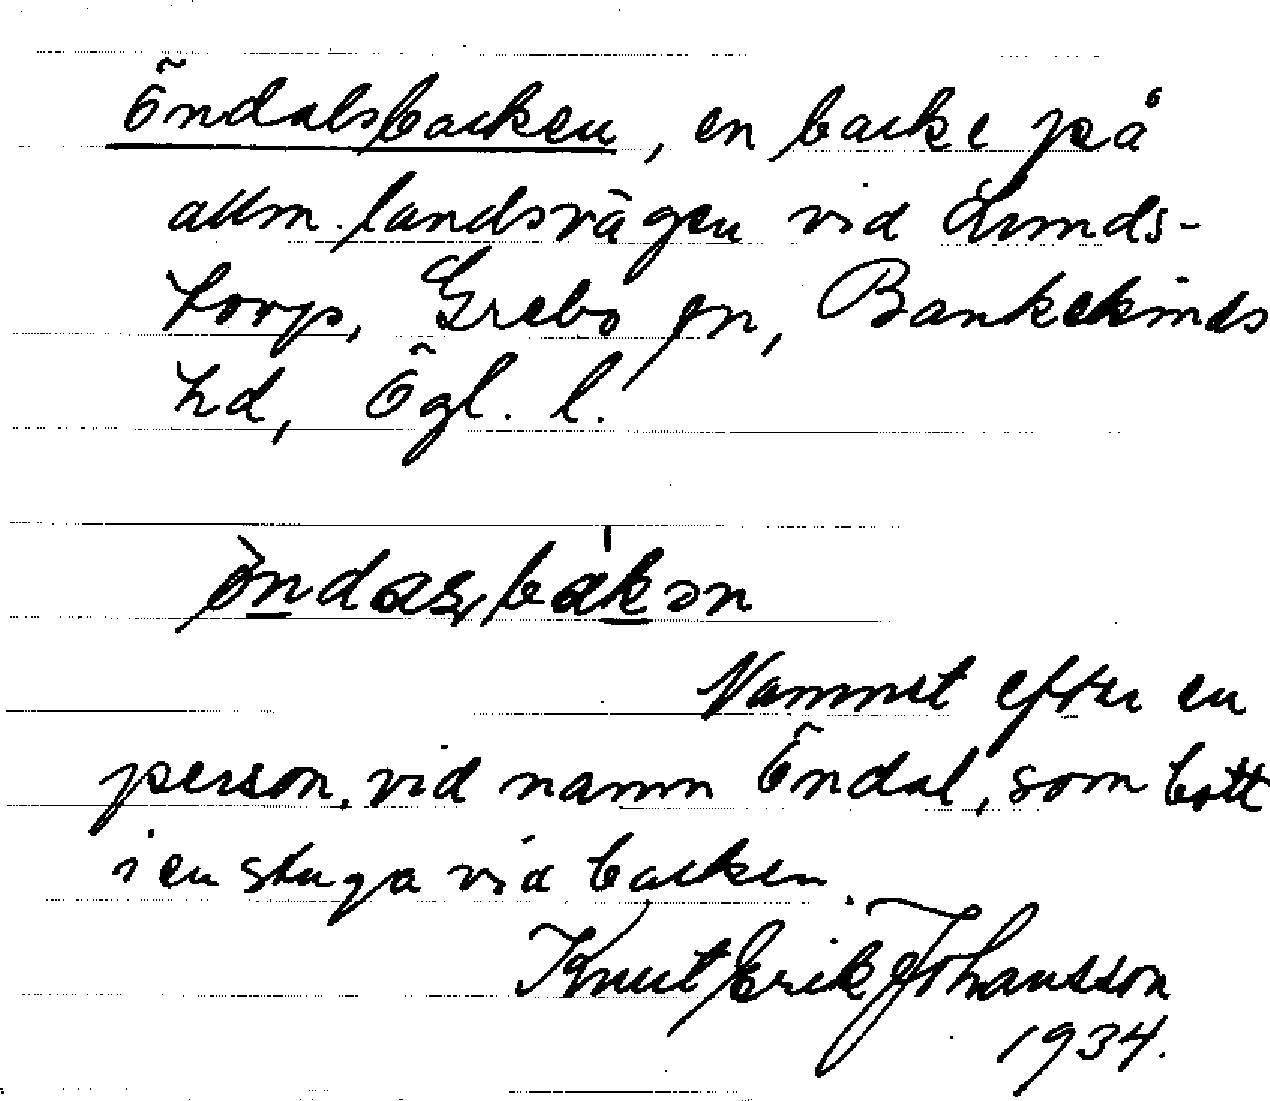 Öndalsbacken, en backe på
allm. landsvägen vid Lunds-
torp, Grebo sn, Bankekinds
hd, Ögl. l.
Namnet efter en
person vid namn Öndal, som bott
i en stuga vid backen.
Knut Erik Johansson
1934.